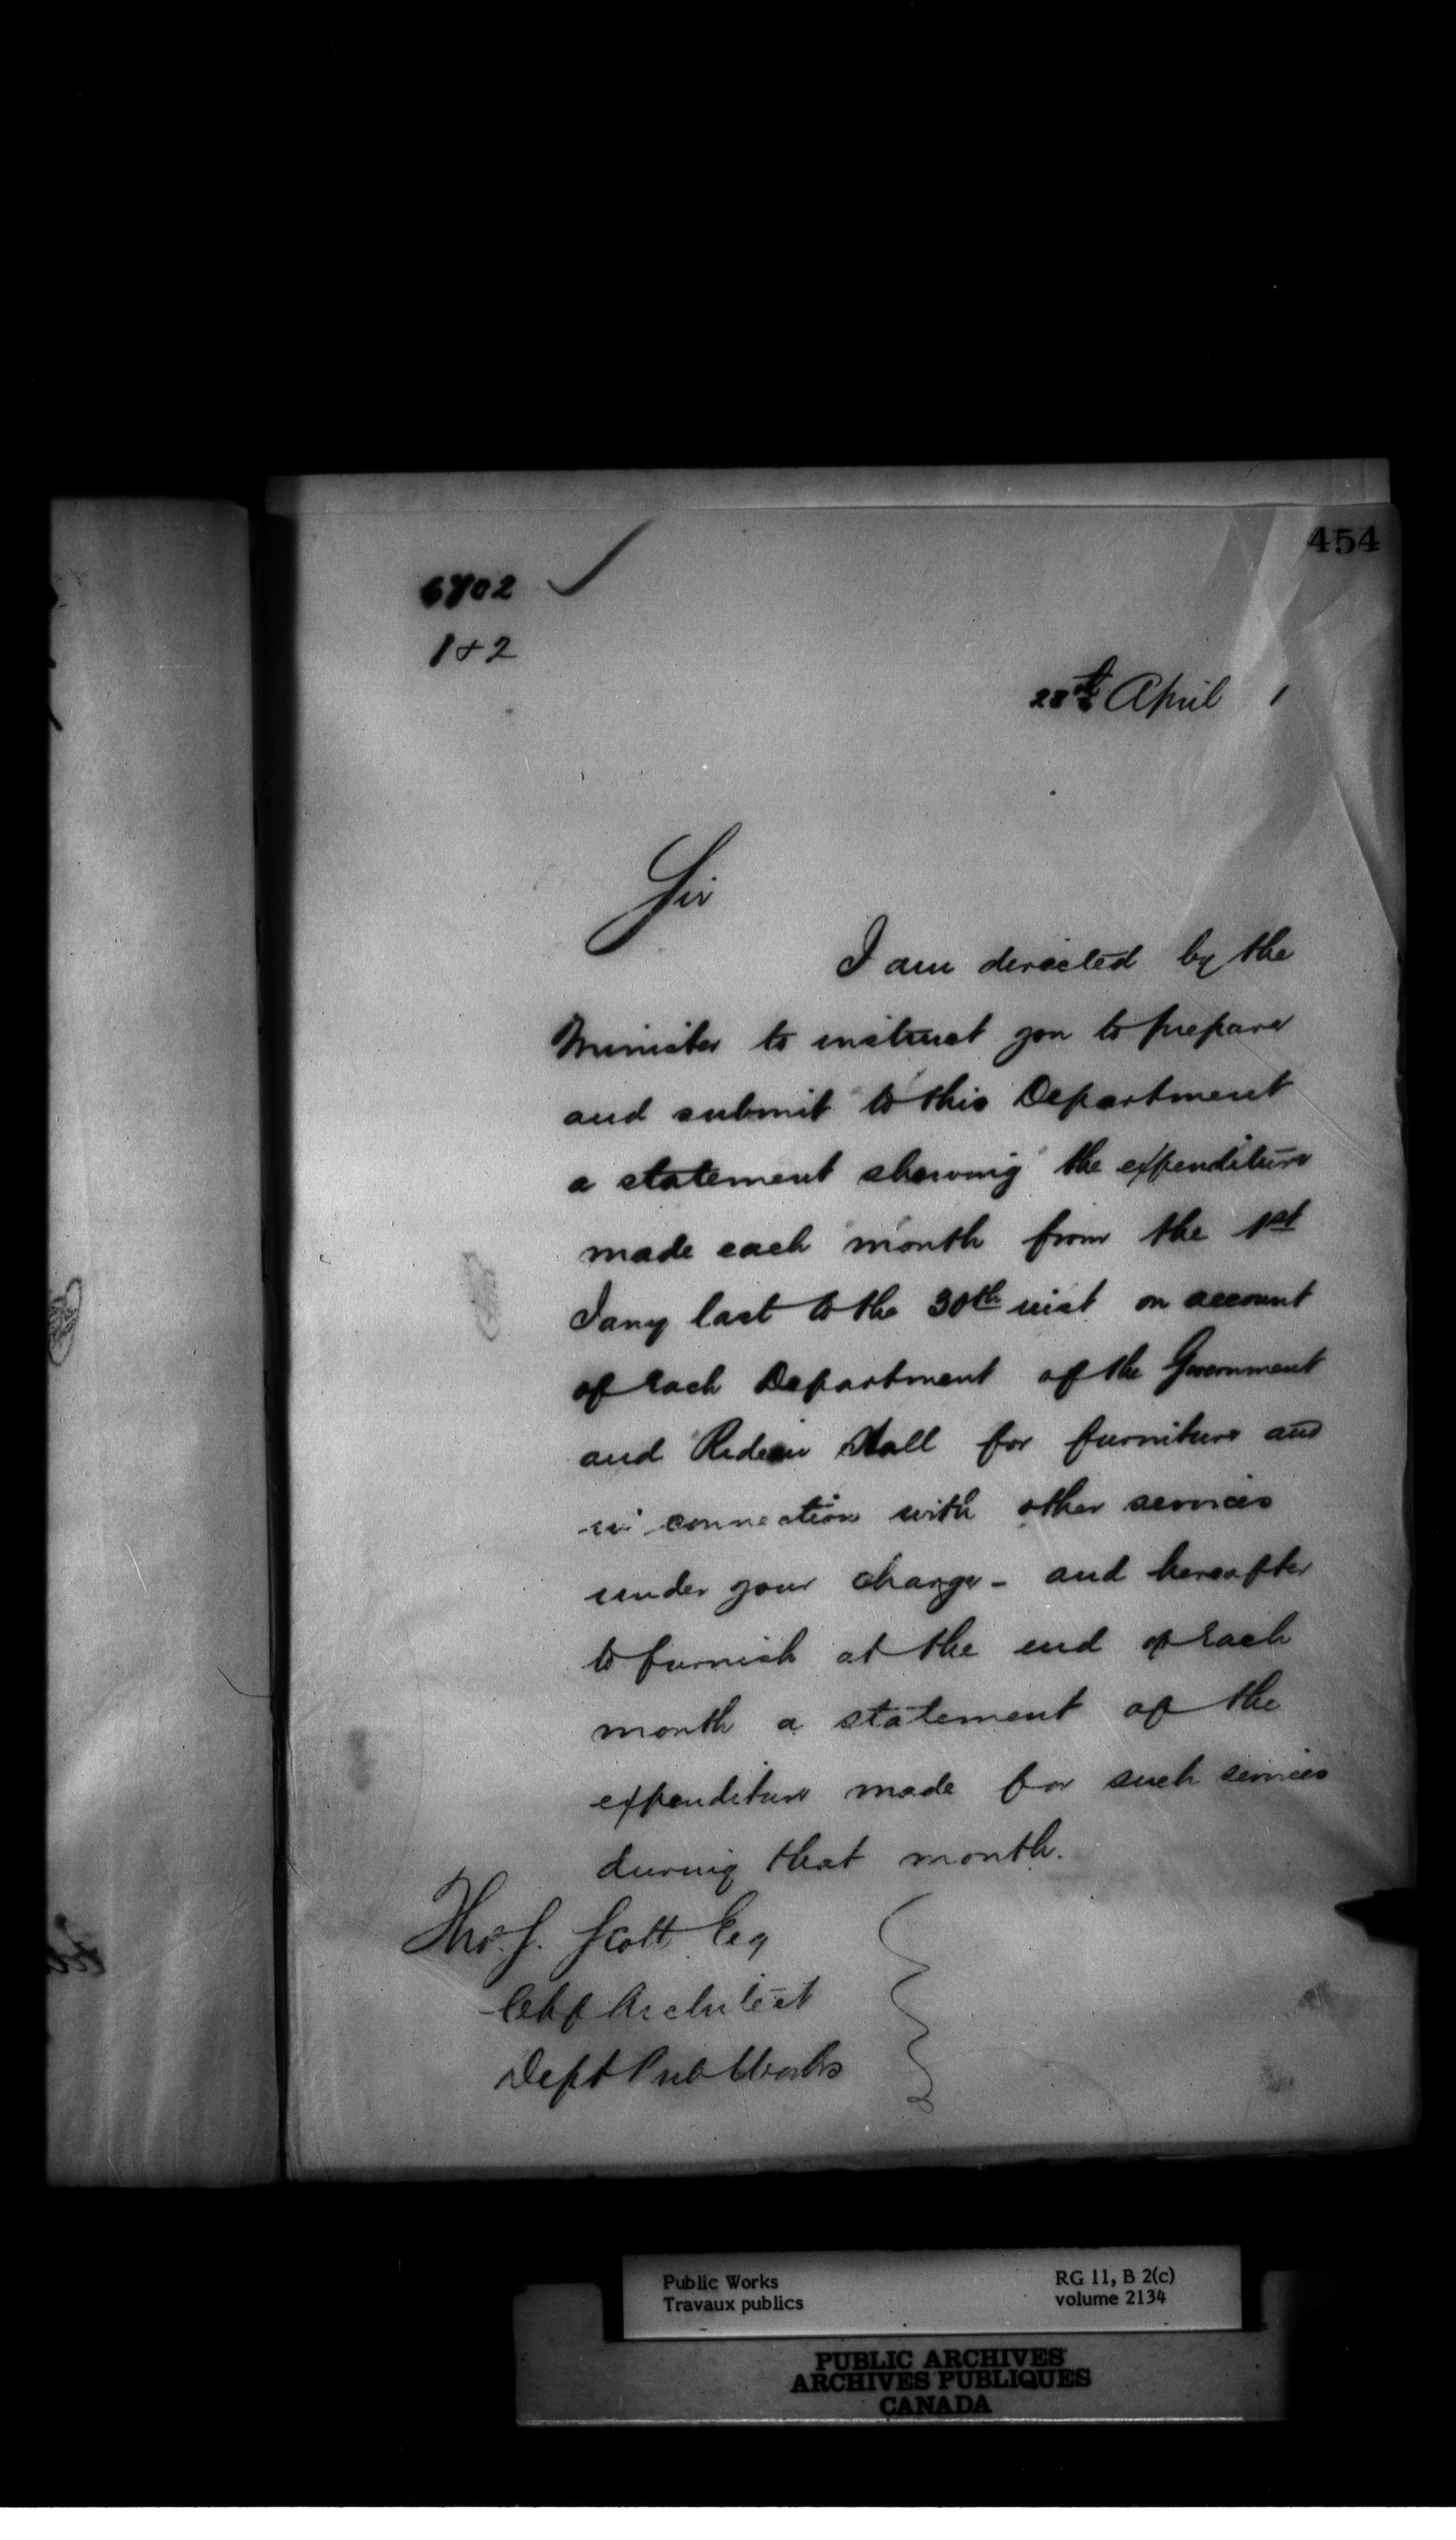 454
6702
1 & 2
28th April 1
Sir
I am directed by the
Minister to instruct you to prepare
and submit to this Department
a statement showing the expenditure
made each month from the 1st
Jany last to the 30th inst on account
of each Department of the Government
and Rideau Hall for furniture and
in connection with other services
under your charge - and hereafter
to furnish at the end of each
month a statement of the
expenditure made for such services
during that month.
Thos. S. Scott Esq
Chf Architect
Dept Pub Works
Public Works
Travaux publics
RG 11, B 2(c)
volume 2134
PUBLIC ARCHIVES
ARCHIVES PUBLIQUES
CANADA